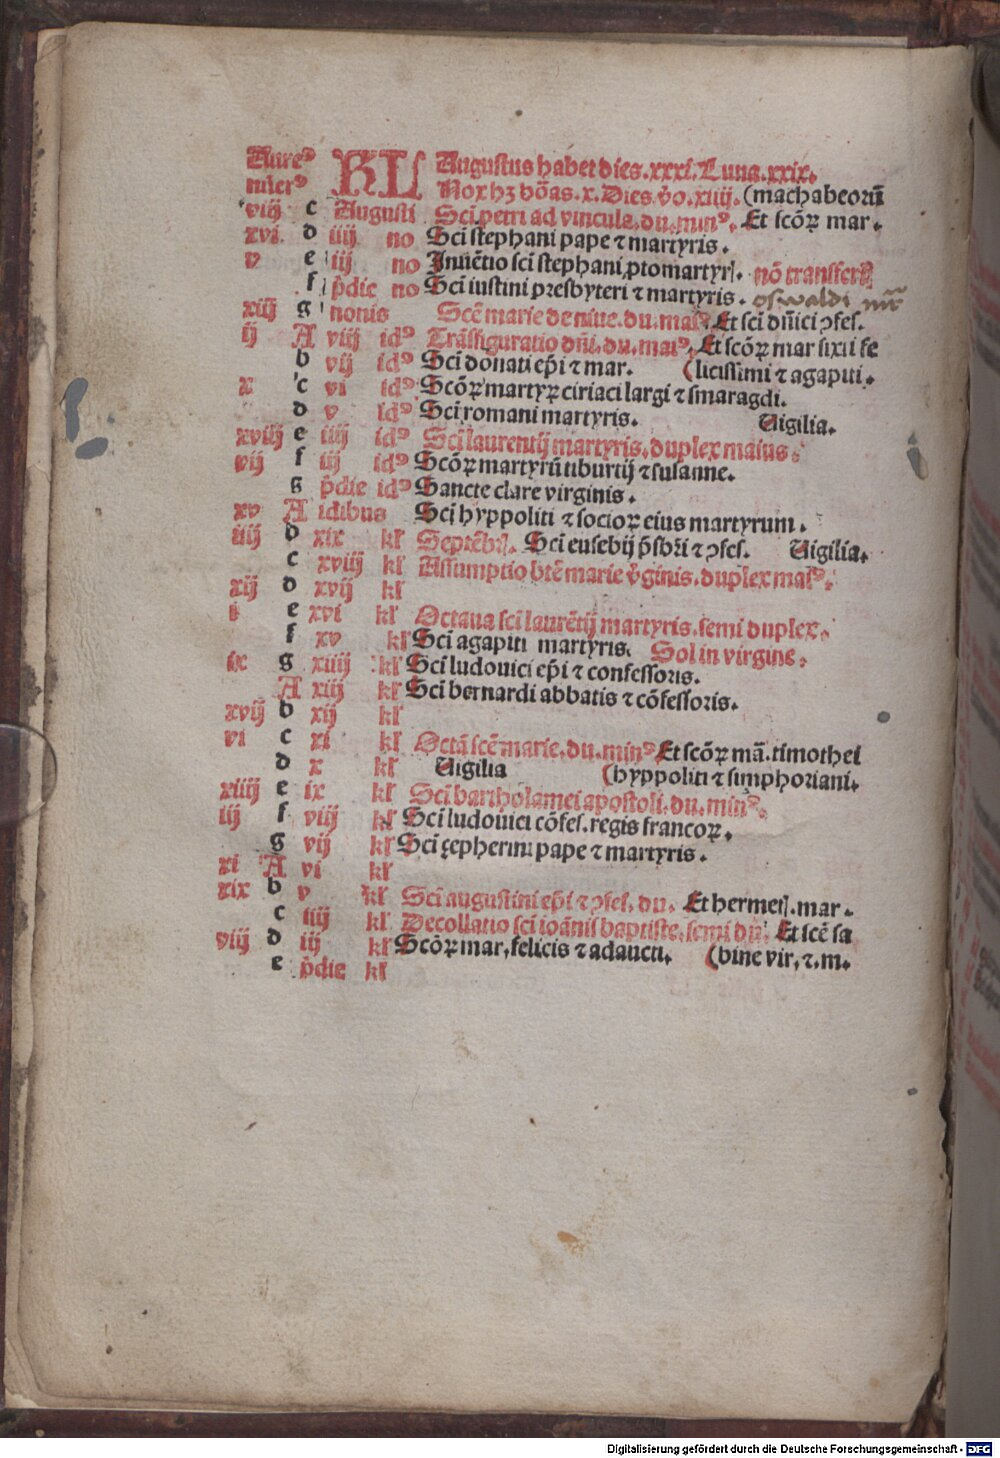 Aureꝰ KL Augustus habet dies .xxxi. Luna .xxix.
nu̅erꝰ Nox hꝫ ho̅as .x. Dies v̊o .xiiij. (machabeoru̅
viij c Augusti Sci̅ petri ad vincula. du. minꝰ. Et sco̅ꝝ mar.
xvi. d iiij no Sci̅ stephani pape ⁊ martyris.
v e iij no Inue̅tio sci̅ stephani ꝓtomartyrꝭ. no̅ transfertꝭ
f p̅die no Sci̅ iustini presbyteri ⁊ martyris. oswaldi mr̅
xiij g nonis Sce̅ marie de niue. du. maꝰ. Et sci̅ dn̅ici ꝯfes.
ij A viij idꝰ Tra̅sfiguratio dn̅i. du. maiꝰ. Et sco̅ꝝ mar sixti fe
b vij idꝰ Sci̅ donati ep̅i ⁊ mar. (licissimi ⁊ agapiti.
x c vi idꝰ Sco̅ꝝ martyꝝ ciriaci largi ⁊ smaragdi.
d v idꝰ Sci̅ romani martyris. Uigilia.
xviij e iiij idꝰ Sci̅ laurentij martyris. duplex maius.
vij f iij idꝰ Sco̅ꝝ martyru̅ tiburtij ⁊ susanne.
g p̅die idꝰ Sancte clare virginis.
xv A idibus Sci̅ hyppoliti ⁊ socioꝝ eius martyrum.
iiij b xix kl̅ Septe̅brꝭ. Sci̅ eusebij p̅sbr̅i ⁊ ꝯfes. Uigilia.
c xviij kl̅ Assumptio bte̅ marie v̊ginis. duplex maꝰ.
xij d xvij kl̅
i e xvi kl̅ Octaua sci̅ laure̅tij martyris. semi duplex.
f xv kl̅ Sci̅ agapiti martyris. Sol in virgine.
ix g xiiij kl̅ Sci̅ ludouici ep̅i ⁊ confessoris.
A xiij kl̅ Sci̅ bernardi abbatis ⁊ co̅fessoris.
xvij b xij kl̅
vi c xi kl̅ Octa̅ sce̅ marie. du. minꝰ Et sco̅ꝝ ma̅. timothei
d x kl̅ Uigilia (hyppoliti ⁊ simphoriani.
xiiij e ix kl̅ Sci̅ bartholamei apostoli. du. minꝰ.
iij f viij kl̅ Sci̅ ludouici co̅fes. regis francoꝝ.
g vij kl̅ Sci̅ çepherini pape ⁊ martyris.
xi A vi kl̅
xix b v kl̅ Sci̅ augustini ep̅i ⁊ ꝯfes. du. Et hermetꝭ. mar.
c iiij kl̅ Decollatio sci̅ ioa̅nis baptiste. semi du̅. Et sce̅ sa
viij d iij kl̅ Sco̅ꝝ mar. felicis ⁊ adaucti. (bine vir. ⁊. m.
e p̅die kl̅
Digitalisierung gefördert durch die Deutsche Forschungsgemeinschaft - DFG